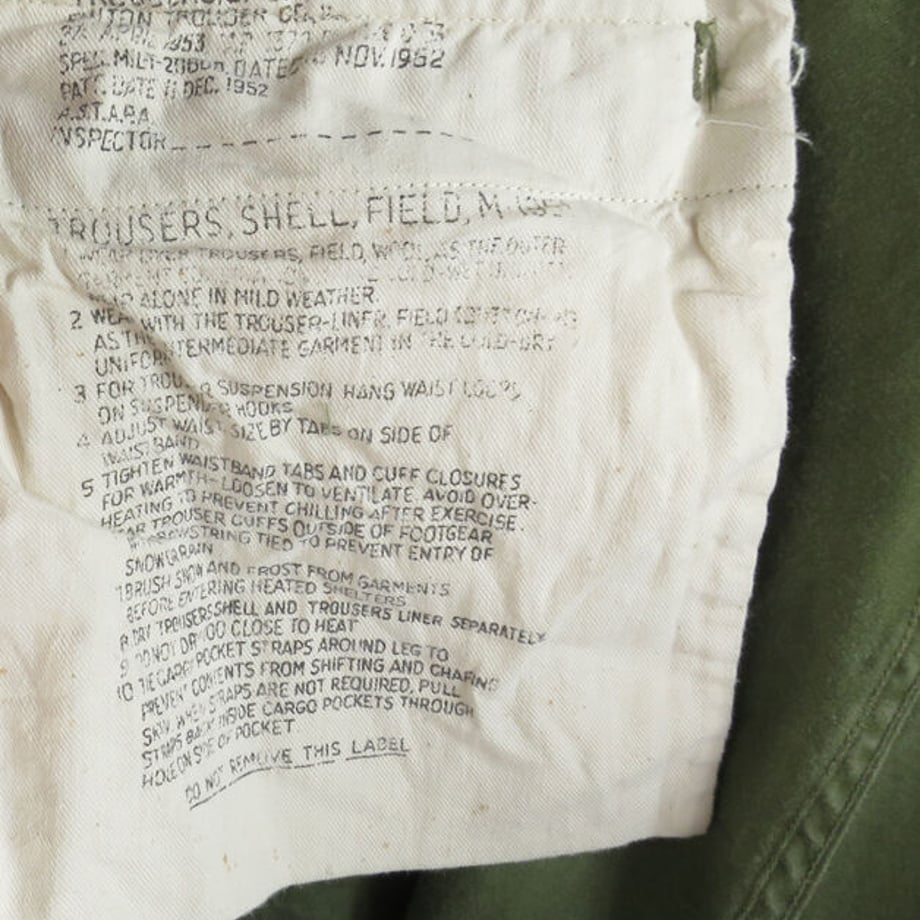 TROUSER
APRIL 1953
SPEC. MIL-T- DATED NOV. 1952
PATT. DATE 11 DEC. 1952
A.S.T.A.P.A.
INSPECTOR
TROUSERS, SHELL, FIELD, M
WEAR OVER TROUSERS, FIELD, WOOL, AS THE OUTER
ALONE IN MILD WEATHER.
2 WEAR WITH THE TROUSER-LINER, FIELD
AS THE INTERMEDIATE GARMENT IN THE COLD-DRY
UNIFORM
3 FOR TROUSER SUSPENSION HANG WAIST LOOPS
ON SUSPENDER HOOKS
4 ADJUST WAIST SIZE BY TABS ON SIDE OF
WAISTBAND
5 TIGHTEN WAISTBAND TABS AND CUFF CLOSURES
FOR WARMTH- LOOSEN TO VENTILATE. AVOID OVER-
HEATING TO PREVENT CHILLING AFTER EXERCISE.
WEAR TROUSER CUFFS OUTSIDE OF FOOTGEAR
DRAWSTRING TIED TO PREVENT ENTRY OF
SNOW OR RAIN
7 BRUSH SNOW AND FROST FROM GARMENTS
BEFORE ENTERING HEATED SHELTERS
8 DRY TROUSERS SHELL AND TROUSERS LINER SEPARATELY
9 DO NOT DRY TOO CLOSE TO HEAT
10 TIE CARGO POCKET STRAPS AROUND LEG TO
PREVENT CONTENTS FROM SHIFTING AND CHAFING
SKIN WHEN STRAPS ARE NOT REQUIRED, PULL
STRAPS BACK INSIDE CARGO POCKETS THROUGH
HOLE ON SIDE OF POCKET
DO NOT REMOVE THIS LABEL